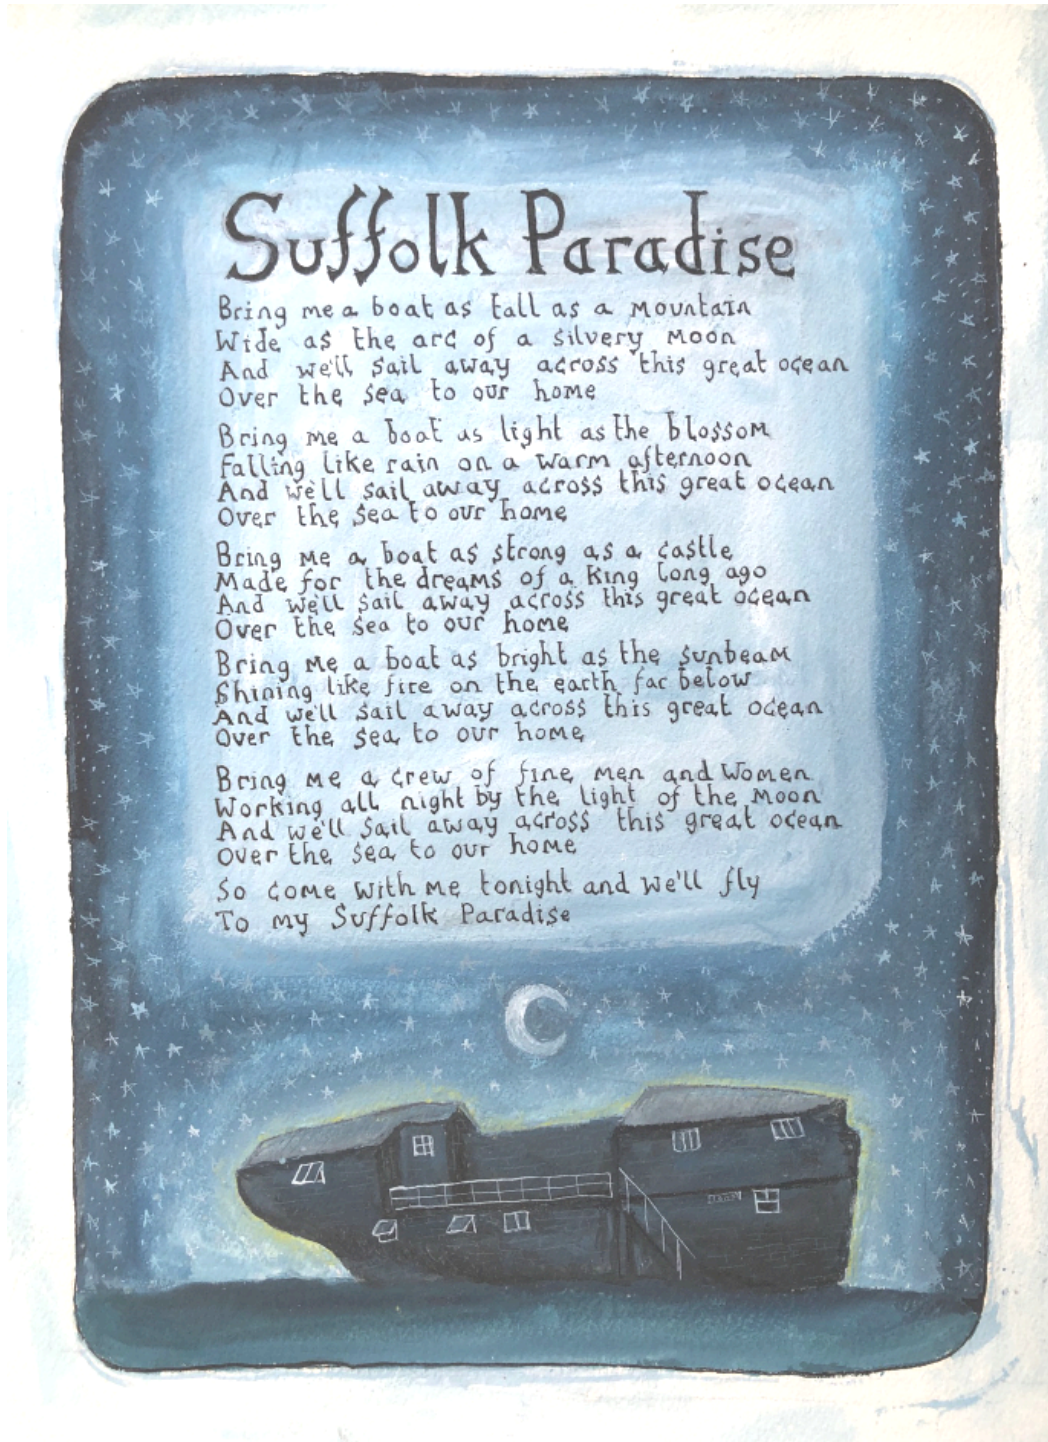 Suffolk Paradise
Bring me a boat as tall as a mountain
Wide as the arc of a silvery moon
And we'll sail away across this great ocean
Over the sea to our home
Bring me a boat as light as the blossom
Falling like rain on a warm afternoon
And we'll sail away across this great ocean
Over the sea to our home
Bring me a boat as strong as a castle
Made for the dreams of a King long ago
And we'll sail away across this great ocean
Over the sea to our home
Bring me a boat as bright as the sunbeam
Shining like fire on the earth far below
And we'll sail away across this great ocean
Over the sea to our home
Bring me a crew of fine men and women
Working all night by the light of the moon
And we'll sail away across this great ocean
Over the sea to our home
So come with me tonight and we'll fly
To my Suffolk Paradise